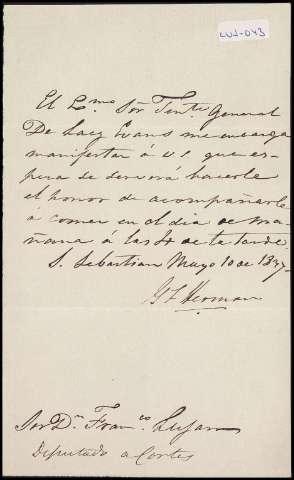 LUJ-043
El E.mo Sor Tente General
De Lacy Evans me encarga
manifestar á V.S. que es-
pera se servirá hacerle
el honor de acompañarle
á comer en el dia de ma-
ñana á las de la tarde.
S. Sebastian Mayo 10 de 1837
Herman
Sor Dn Franco Lujan
Deputado a Cortes